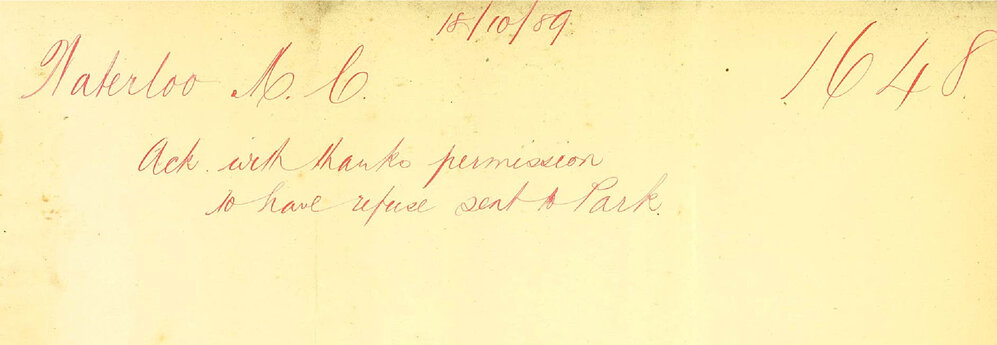 18/10/89.
Waterloo M. C. 1648.
Ack. with thanks permission
to have refuse sent to Park.